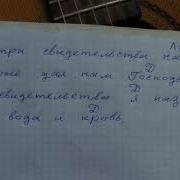 A
три свидетельства на
D
дал нам Господь
свидетельства я наз
D
вода и кровь